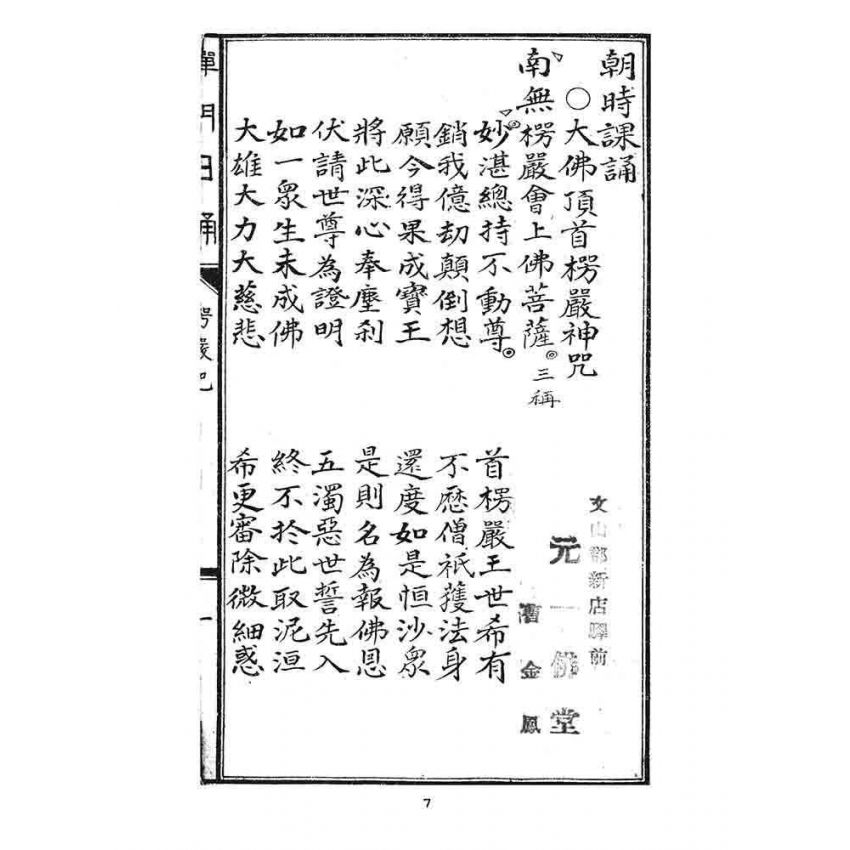 朝時課誦
○大佛頂首楞嚴神咒
南無楞嚴會上佛菩薩。三稱
妙湛總持不動尊。 首楞嚴王世希有
銷我億劫顛倒想 不歷僧祇獲法身
願今得果成寶王 還度如是恒沙眾
將此深心奉塵刹 是則名為報佛恩
伏請世尊為證明 五濁惡世誓先入
如一眾生未成佛 終不於此取泥洹
大雄大力大慈悲 希更審除微細惑
文山郡新店驛前
元一佛堂
漕金鳳
禪門日誦
楞嚴咒
一
7